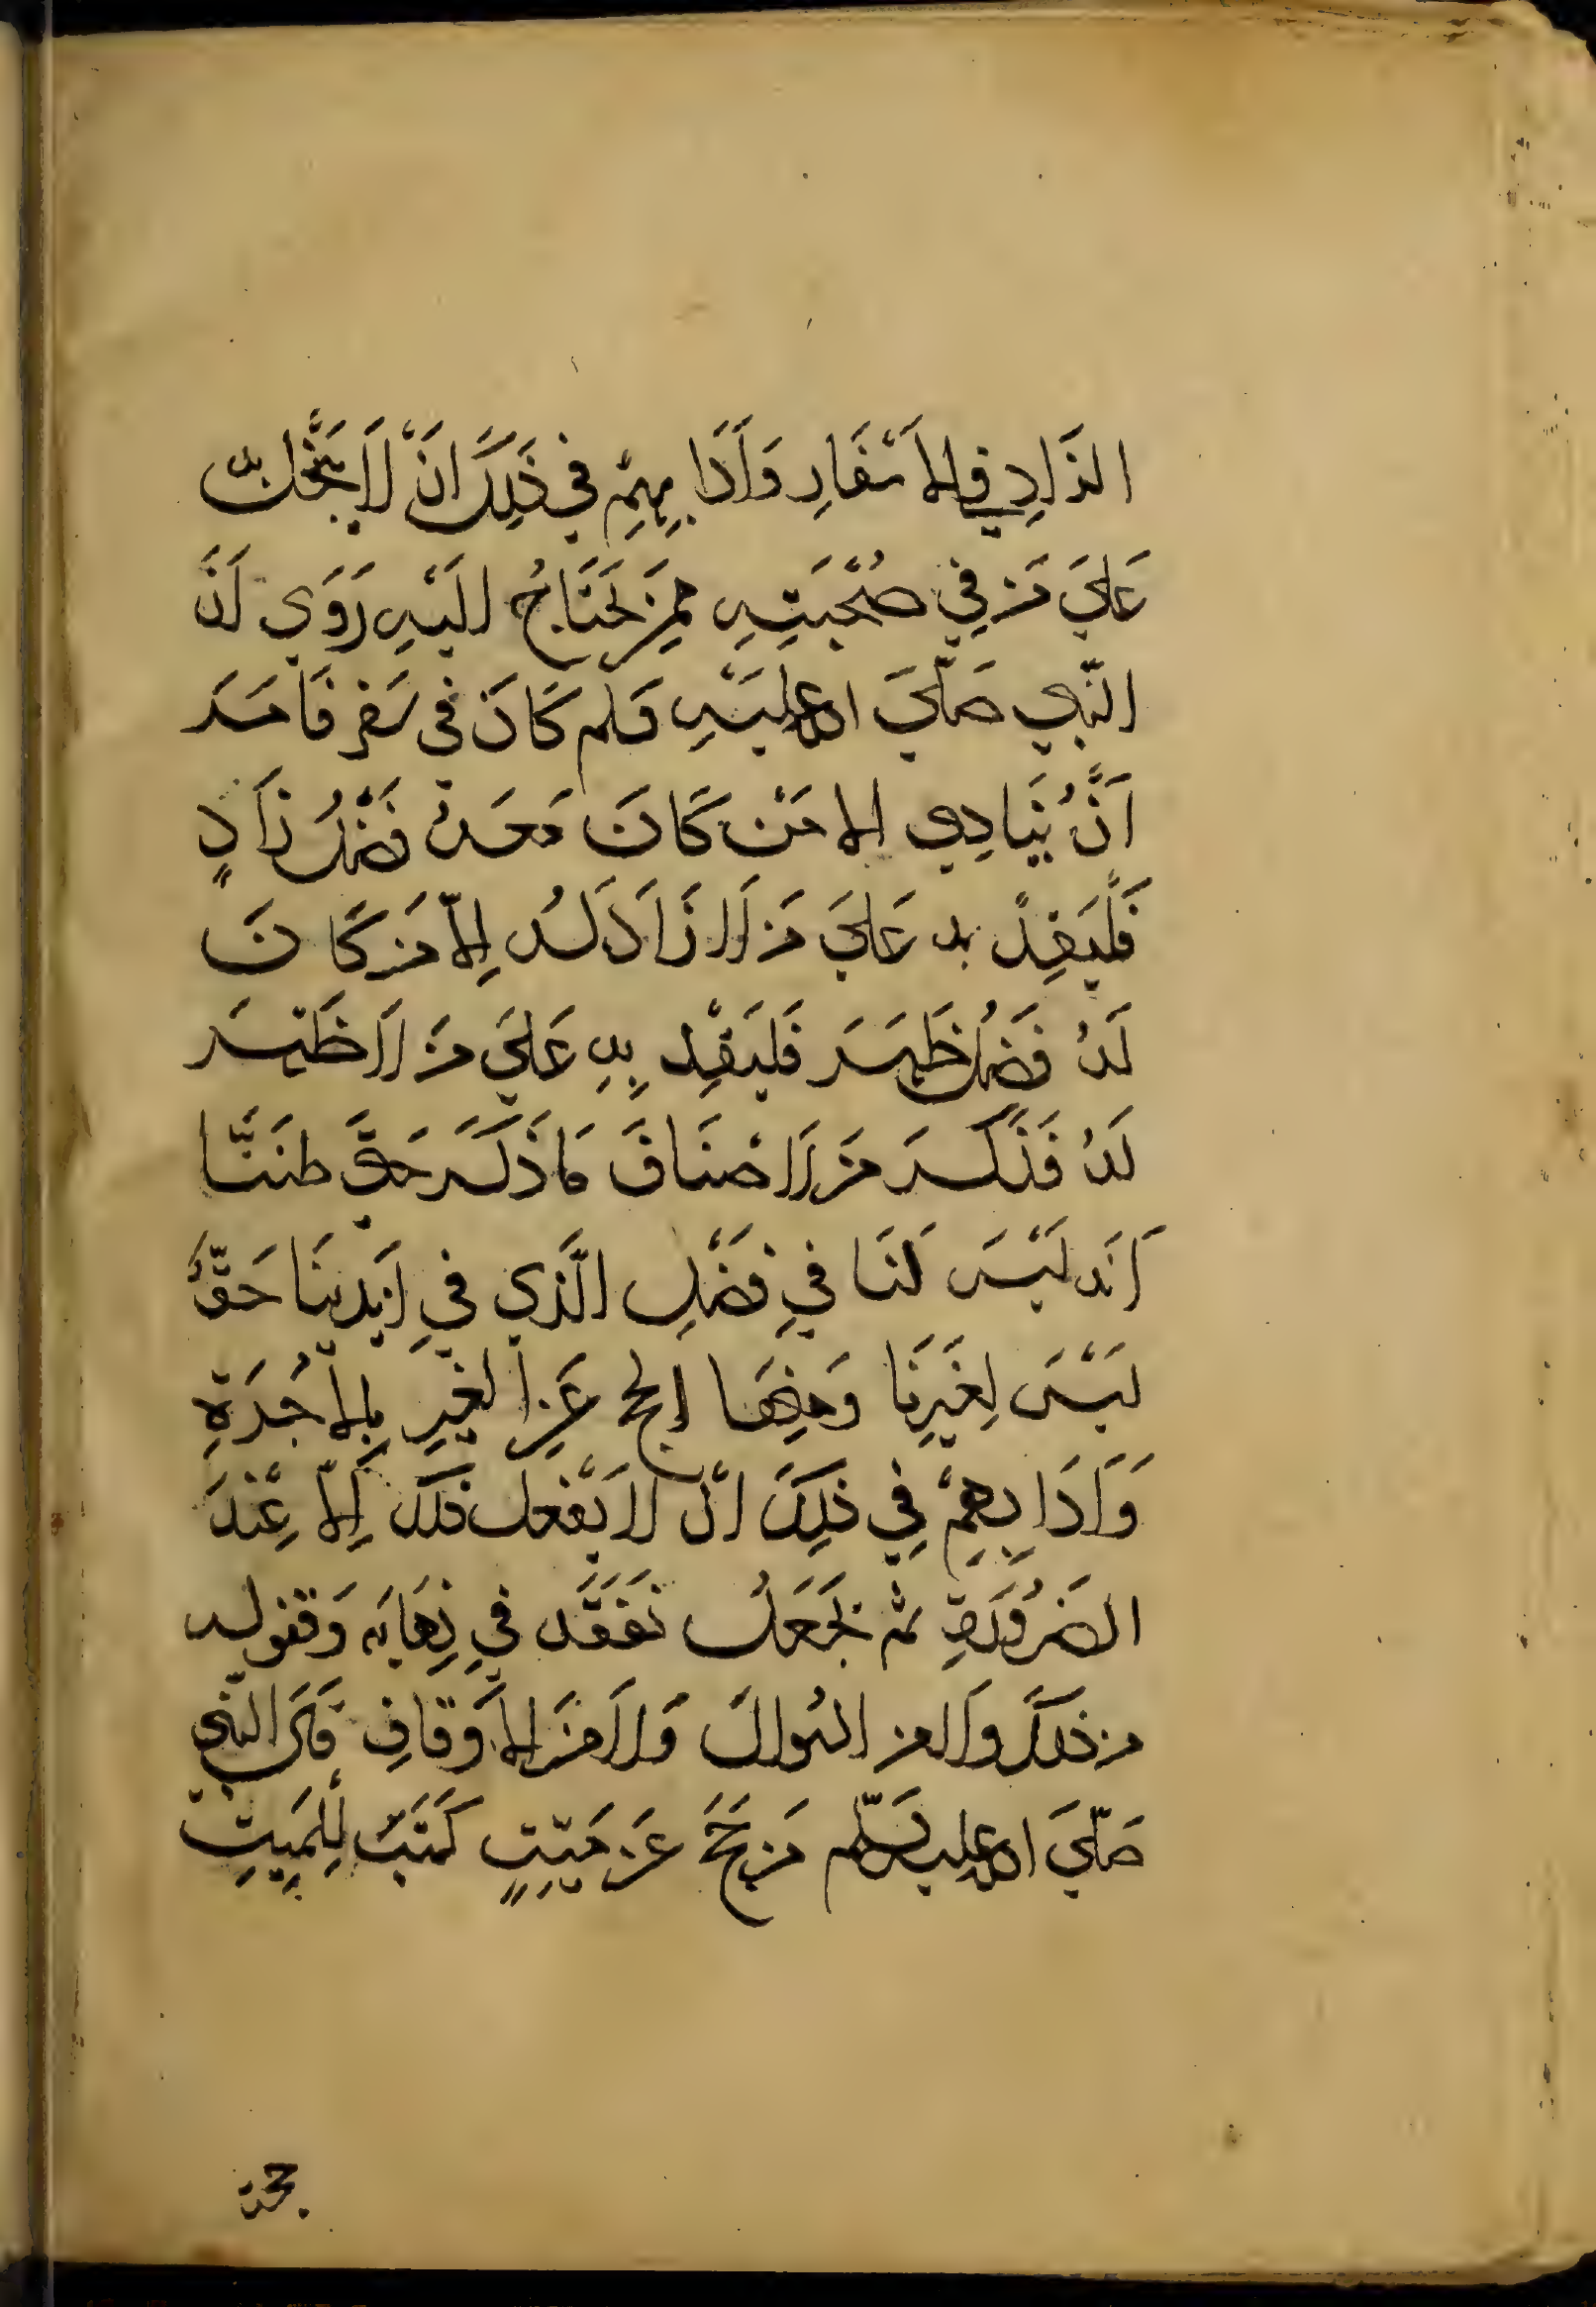 الزَادِ في الأَسْفَارِ وَآدَابِهِمْ في ذَلِكَ انَ لَا يَبْخَلَ بِهِ
عَليَ مَن فِي صُحْبَتِهِ مِمَن يَحتَاجُ الَيْهِ رَوَي اَنَ
النّبي صَلّيَ الله عليَهِ وَسلم كَانَ في سَفر فَامَرَ
اَنْ يُنَادِي الا مَنْ كَانَ مَعَهُ فَضْلُ زَادٍ
فَلْيَعُدْ به عَليَ مَن لَا زَادَ لَهُ اِلاّ مَن كَانَ
لَهُ فَضْلُ ظَهرَ فَليَعُد بِهِ عَليَ مَن لَا ظَهرَ
لَهُ فَذَكَرَ مَن الَاصْنَافَ مَا ذَكَرَ حَتيَّ ظنَنَّا
اَنَه لَيْسَ لَنَا فيِ فَضْلِ الَّذي فيِ اَيْدينَا حَقٌّ
لَيْسَ لِغَيرِنَا وَمِنهَا الحج عَنِ الغَيرِ بِالأُجْرَةِ
وَآدَابِهِمْ فِي ذلِكَ انْ لَا يَفْعل ذلك اِلاّ عِنْدَ
الضَرُورَةِ ثم يَجعَلُ نَفَقَتَه فيِ ذِهَابِه وَقفوله
من ذلكَ لَا من السُوالَ وَلَا مَن الأَوقافِ قَالَ النّبي
صَلّيَ الله عليه وَسَلّم مَن حَجَّ عَن مَيّتٍ كَتَبَ لِلمَيتِ
حجة